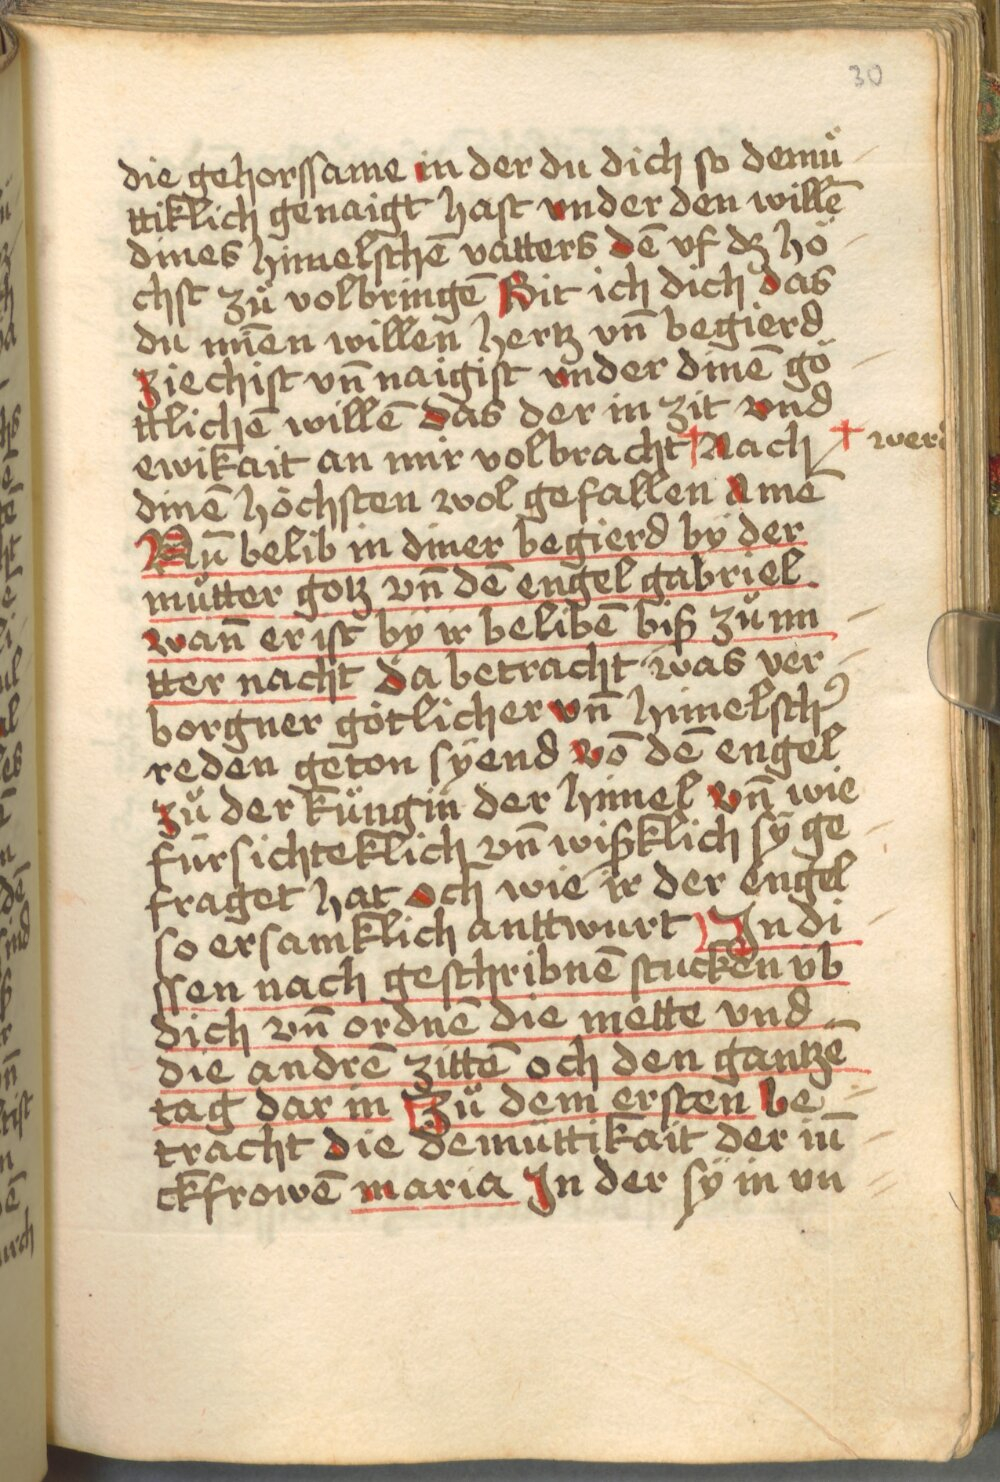 30
die gehorssame in der du dich so demuͤ
ttiklich genaigt hast vnder den willē
dines himelschē vatters dē vf dz hoͤ
chst zuͦ volbringē Bit ich dich das
du minen willen hertz vn̄ begierd
ziechist vn̄ naigist vnder dinē goͤ
ttlichē willē das der in zit vnd
ewikait an mir volbracht † Nach † werd
dinē hoͤchsten wol gefallen Amē
Nū belib in diner begierd by der
muͦtter gotz vn̄ dē engel gabriel
wan̄ er ist by ir belibē biß zuͦ mi
tter nacht da betracht was ver
borgner goͤtlicher vn̄ himelscher
reden geton syend vō dē engel
zuͦ der kúngin der himel vn̄ wie
fúrsichteklich vn̄ wißklich sy ge
fraget hat och wie ir der engel
so ersamklich anttwurt In di
ssen nach geschribnē stucken vͤb
dich vn̄ ordnē die mette vnd
die andrē zittē och den gantzē
tag dar in Zuͦ dem ersten be
tracht die demuͤttikait der iū
ckfrowē maria In der sy in vn